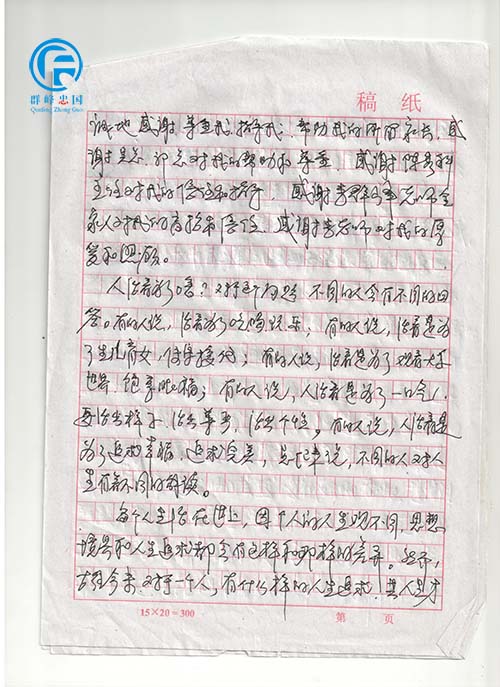 群峰忠国
Qunfeng Zhong Guo
稿 纸
诚地感谢尊重我、指导我、帮助我的所有家长,感
主任对我的信任和指导,感谢李群
家人对我的支持和信任,感谢老师对我的厚
爱和照顾。
人活着为了啥?对这个问题,不同的人会有不同的回
答。有的人说,活着为了吃喝玩乐;有的人说,活着是为
了生儿育女,传宗接代;有的人说,活着是为了观看大千
世界,饱享眼福;有的人说,人活着是为了一口气,
要活出样子,活出尊严,活出个性。有的人说,人活着是
为了追求幸福,追求完美,总之来说,不同的人对人
生有着不同的解读。
每个人生活在世上,因个人的人生观不同,思想
境界和人生追求都会有这样和那样的差异。然而,
古往今来,对于一个人,有什么样的人生追求,其人生才
15×20=300
第 页